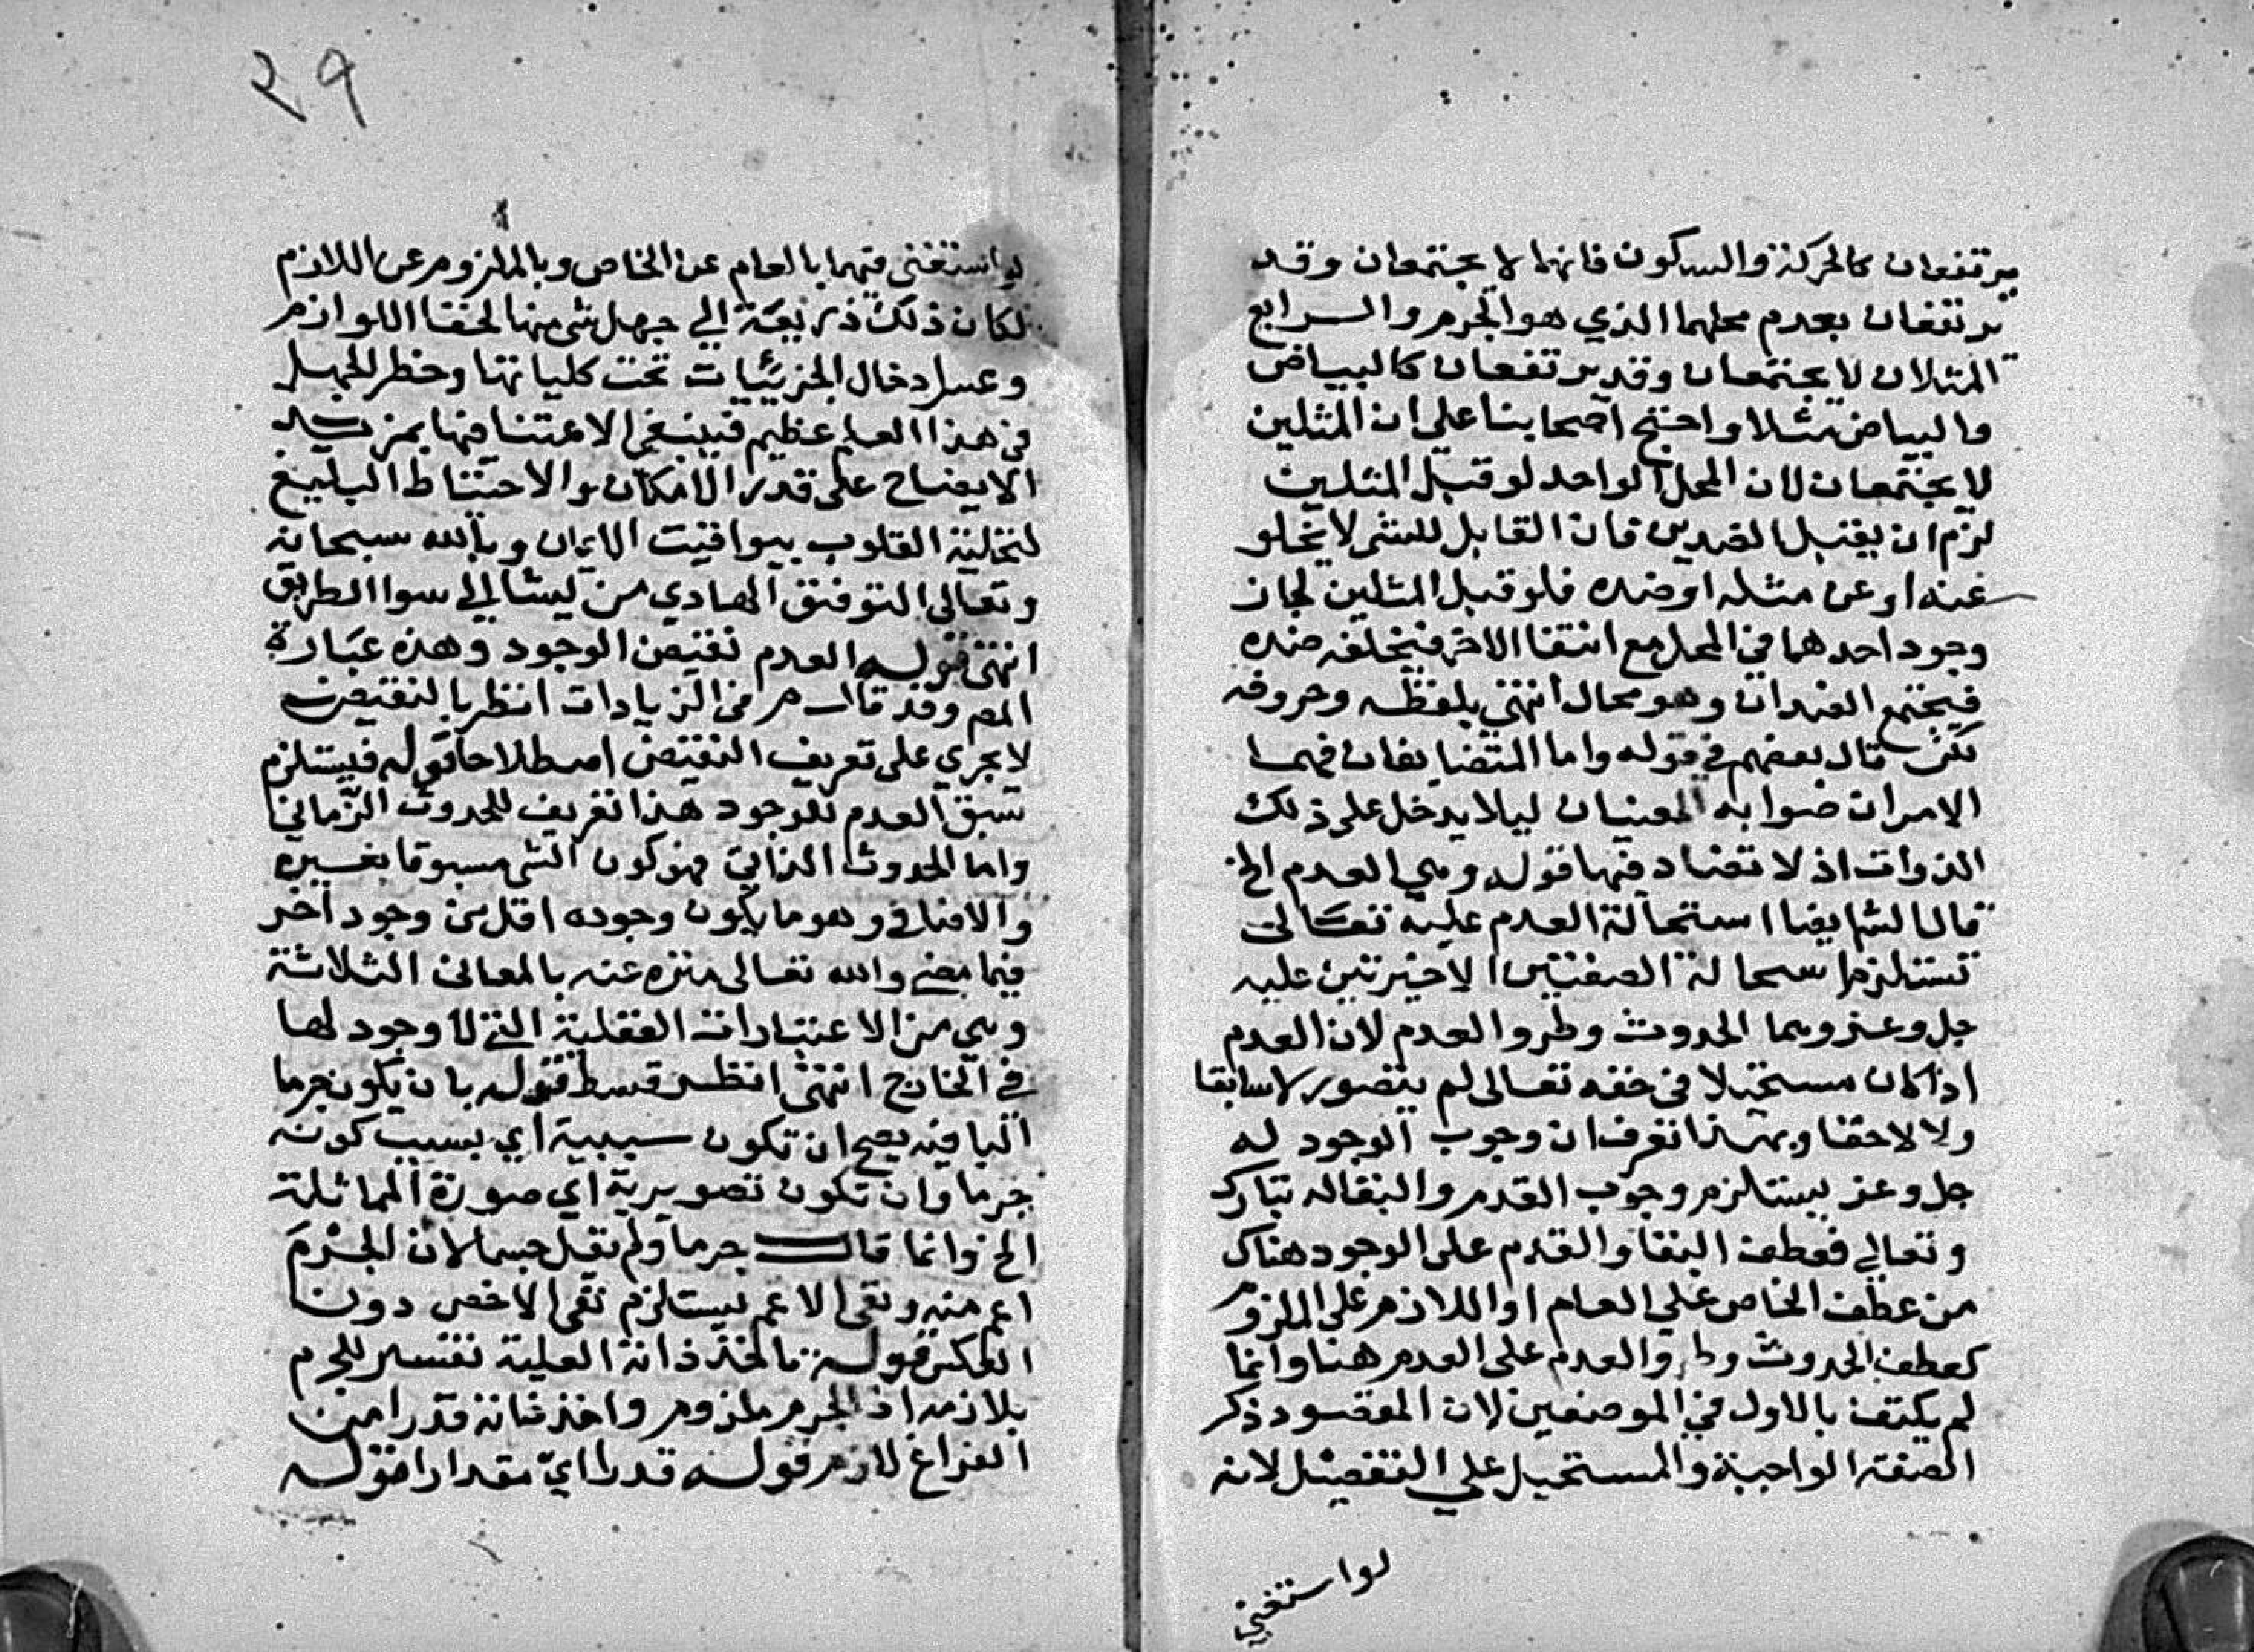 يرتفعان كالحركة والسكون فانهما لا يجتمعان وقد
يرتفعان بعدم محلهما الذي هو الجرم والرابع
المثلان لا يجتمعان وقد يرتفعان كالبياض
والبياض مثلا واحتج اصحابنا علي ان المثلين
لا يجتمعان لان المحل الواحد لو قبل المثلين
لزم ان يقبل الضدين فان القابل للشي لا يخلو
عنه او عن مثله او ضده فلو قبل المثلين لجاز
وجود احدهما في المحل مع انتفا الاخر فيخلفه ضده
فيجتمع الضدان وهو محال انتهي بلفظه وحروفه
لكن قال بعضهم في قوله واما المتضايفان فهما
الامران صوابه المعنيان ليلا يدخل على ذلك
الذوات اذ لا تضاد فيها قوله وهي العدم الخ
قال الش ايضا استحالة العدم عليه تعالى
تستلزم استحالة الصفتين الاخيرتين عليه
جل وعز وهما الحدوث وطرو العدم لان العدم
اذا كان مستحيلا في حقه تعالى لم يتصور لا سابقا
ولا لاحقا وبهذا تعرف ان وجوب الوجود له
جل وعز يستلزم وجوب القدم والبقا له تبارك
وتعالي فعطف البقا والقدم على الوجود هناك
من عطف الخاص علي العام او اللازم على الملزوم
كعطف الحدوث وطرو العدم على العدم هنا وانما
لم يكتف بالاول في الموضعين لان المقصود ذكر
الصفة الواجبة والمستحيل علي التفصيل لانه
لو استغني
٢٩
لو استغنى فيهما بالعام عن الخاص وبالملزوم عن اللازم
لكان ذلك ذريعة الي جهل شي منها لخفا اللوازم
وعسر ادخال الجزئيات تحت كلياتها وخطر الجهل
في هذا العلم عظيم فينبغي الاعتنا فيها بمزيد
الايضاح على قدر الامكان والاحتياط البليغ
لتحلية القلوب بيواقيت الايمان وبالله سبحانه
وتعالى التوفيق الهادي من يشا الي سوا الطريق
انتهى قوله العدم نقيض الوجود وهذه عبارة
المص وقد قال م في الزيادات انظر بالنقيض
لا يجري على تعريف النقيض اصطلاحا قوله فيستلزم
سبق العدم للوجود هذا تعريف للحدوث الزماني
واما الحدوث الذاتي فهو كون الشي مسبوقا بغيره
والاضافي وهو ما يكون وجوده اقل من وجود اخر
فيما مضى والله تعالى منزه عنه بالمعانى الثلاثة
وهي من الاعتبارات العقلية التي لا وجود لها
في الخارج انتهى انظر قسط قوله بان يكون جرما
البا فيه يصح ان تكون سببية اي بسبب كونه
جرما وان تكون تصويرية اي صورة المماثلة
الخ وانما قال جرما ولم يقل جسما لان الجرم
اعم منه ونفى الاعم يستلزم نفي الاخص دون
العكس قوله تاخذ ذاته العلية تفسير للجرم
بلازمه اذ الجرم ملزوم واخذ ذاته قدرا من
الفراغ لازم قوله قدرا اي مقدارا قوله